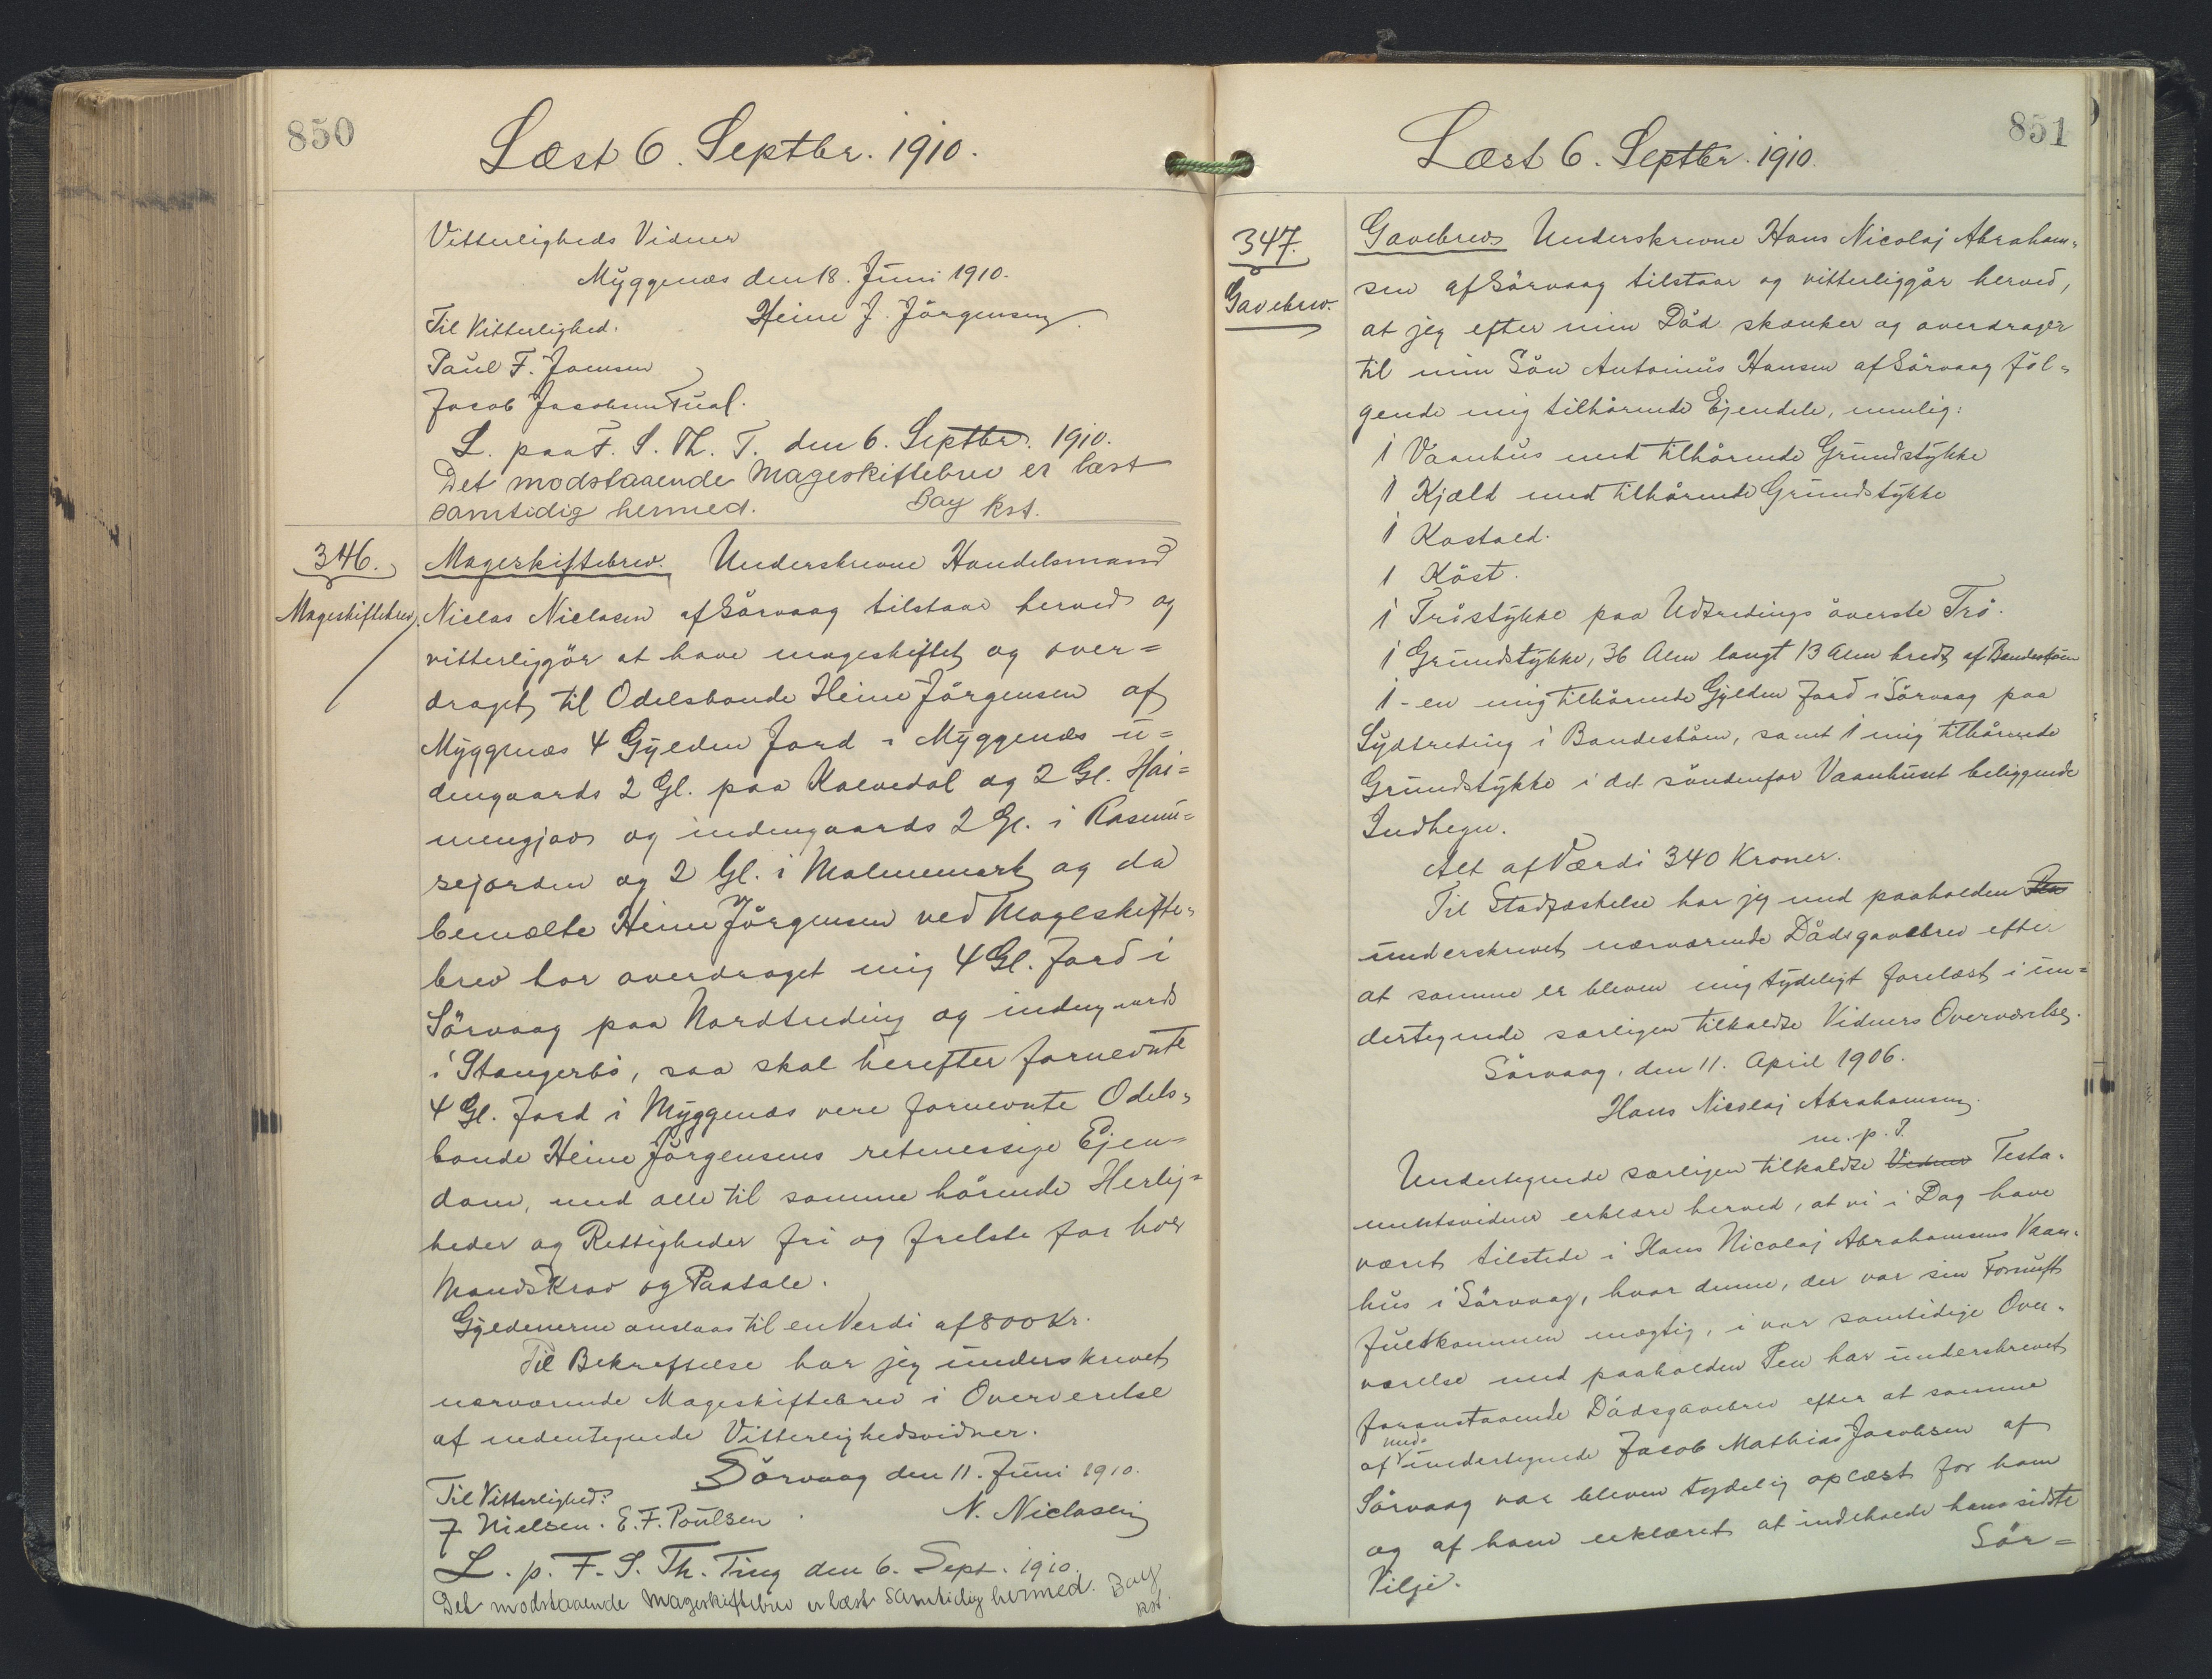 850
Læst 6. Septbr. 1910.
Vitterligheds Vidner
Myggenæs den 18. Juni 1910.
Heine J. Jörgensen
Til Vitterlighed.
Paul F. Joensen
Jacob Jacobsen
L. paa F. S. Th. T. den 6. Septbr. 1910.
Det modstaaende Mageskiftebrev er læst
samtidig hermed. Bay kst.
346.
Mageskiftebrev.
Mageskiftebrev. Underskrevne Handelsmand
Niclas Niclasen af Sörvaag tilstaar herved og
vitterliggör at have mageskiftet og over=
draget til Odelsbonde Heine Jörgensen af
Myggenæs 4 Gylden Jord i Myggenæs u=
dengaards 2 Gl. paa Kalvedal og 2 Gl. Hei=
mengjaor og indengaards 2 Gl. i Rasmu=
sejorden og 2 Gl. i Malunemark og da
bemælte Heine Jörgensen ved Mageskifte=
brev har overdraget mig 4 Gl. Jord i
Sörvaag paa Nordtreding og indengaards
i Stangerbö, saa skal herefter fornevnte
4 Gl. Jord i Myggenæs vere fornevnte Odels=
bonde Heine Jörgensens retmessige Ejen=
dom, med alle til samme hörende Herlig=
heder og Rettigheder fri og frelste for hver
Mands Krav og Paatale.
Gyldenerne anslaas til en Verdi af 800 Kr.
Til Bekræftelse har jeg underskrevet
nærværende Mageskiftebrev i Oververelse
af nedentegnede Vitterlighedsvidner.
Sörvaag den 11. Juni 1910.
Til Vitterlighed: N. Niclasen
J Nielsen. E. F. Poulsen
L. p. F. S. Th. Ting den 6. Sept. 1910.
Det modstaaende Mageskiftebrev er læst samtidig hermed. Bay
kst.
851
Læst 6. Septbr. 1910.
347.
Gavebrev.
Gavebrev Underskrevne Hans Nicolaj Abraham=
sen af Sörvaag tilstaar og vitterliggör herved,
at jeg efter min Död skænker og overdrager
til min Sön Antonius Hansen af Sörvaag föl=
gende mig tilhörende Ejendele, nemlig:
1 Vaanhus med tilhörende Grundstykke
1 Kjæld med tilhörende Grundstykke
1 Kostald.
1 Köst.
1 Tröstykke paa Udtredings överste Trö.
1 Grundstykke, 36 Alen langt 13 Alen bredt, af Bandestöen
1 - en mig tilhörende Gylden Jord i Sörvaag paa
Sydtreding i Bondestöen, samt 1 mig tilhörende
Grundstykke i det söndenfor Vaanhuset beliggende
Indhegn.
Alt af Værdi 340 Kroner.
Til Stadfæstelse har jeg med paaholden
underskrevet nærværende Dödsgavebrev efter
at samme er bleven mig tydeligt forelæst i un=
dertegnede særligen tilkaldte Vidners Overværelse.
Sörvaag, den 11. April 1906.
Hans Nicolaj Abrahamsen
m. p. P.
Undertegnede særligen tilkaldte Vidner Testa=
mentsvidner erklære herved, at vi i Dag have
været tilstede i Hans Nicolaj Abrahamsens Vaan=
hus i Sörvaag, hvor denne, der var sin Fornuft
fuldkommen mægtig, i vor samtidige Over=
værelse med paaholden Pen har underskrevet
foranstaaende Dödsgavebrev efter at samme
med=
af undertegnede Jacob Mathias Jacobsen af
Sörvaag var bleven tydelig oplæst for ham
og af ham erklæret at indeholde hans sidste
Vilje. Sör=